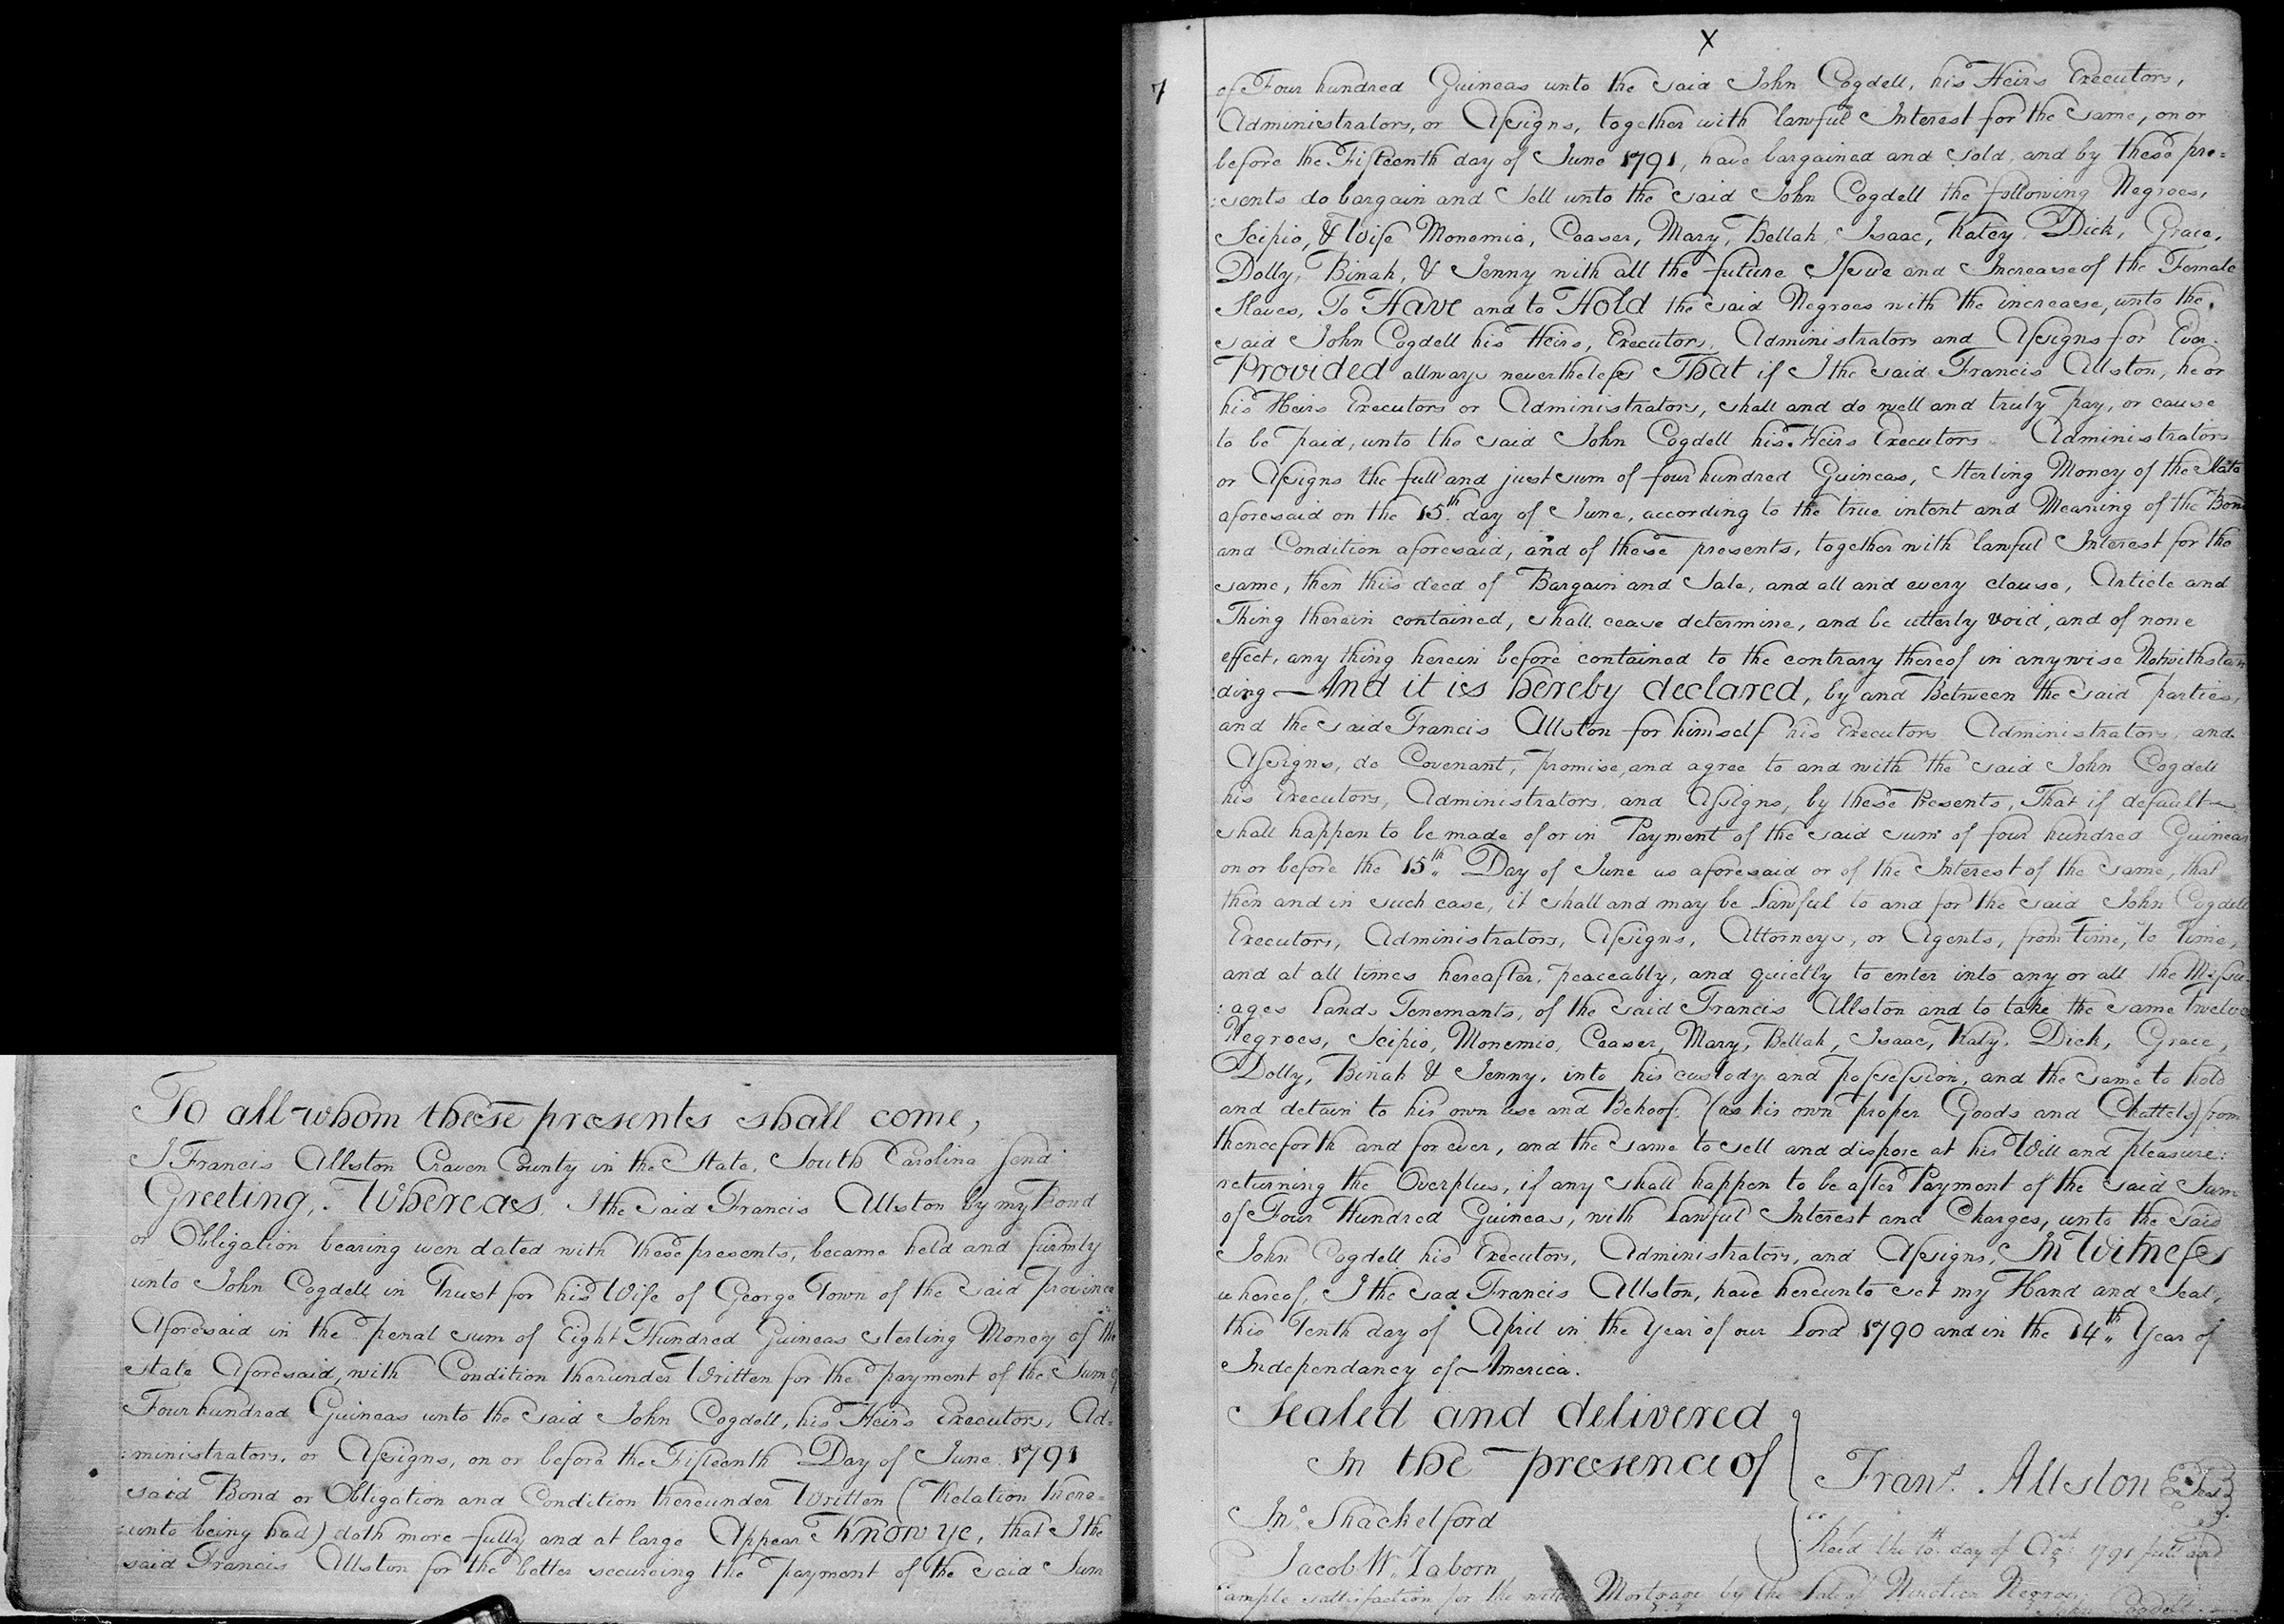 To all whom these presents shall come,
I Francis Allston Craven County in the State, South Carolina send
Greeting, Whereas, I the said Francis Allston by my Bond
or Obligation bearing even dated with these presents, became held and firmly
unto John Cogdell in Trust for his Wife of George Town of the said province
Aforesaid in the penal sum of Eight Hundred Guineas sterling Money of the
state Aforesaid, with Condition thereunder Written for the payment of the Sum of
Four hundred Guineas unto the said John Cogdell, his Heirs Executors, Ad=
:ministrators, or Assigns, on or before the Fifteenth Day of June 1791
said Bond or Obligation and Condition thereunder Written (Relation there=
:unto being had) doth more fully and at large Appear Know ye, that I the
said Francis Allston for the better secureing the payment of the said Sum
X
7
of Four hundred Guineas unto the said John Cogdell, his Heirs Executors,
Administrators, or Assigns, together with lawful Interest for the same, on or
before the Fifteenth day of June 1791, have bargained and sold, and by these pre=
:sents do bargain and sell unto the said John Cogdell the following Negroes,
Scipio, & Wife Monemia, Ceaser, Mary, Bellah, Isaac, Katey, Dick, Grace,
Dolly, Binah, & Jenny with all the future Issue and Increase of the Female
Slaves, To Have and to Hold the said Negroes with the increase, unto the
said John Cogdell his Heirs, Executors, Administrators and Assigns for Ever.
Provided allways nevertheless That if I the said Francis Allston, he or
his Heirs Executors or Administrators, shall and do well and truly pay, or cause
to be paid, unto the said John Cogdell his Heirs Executors Administrators
or Assigns the full and just sum of four hundred Guineas, Sterling Money of the State
aforesaid on the 15th day of June, according to the true intent and Meaning of the Bond
and Condition aforesaid, and of these presents, together with lawful Interest for the
same, then this deed of Bargain and Sale, and all and every clause, Article and
Thing therein contained, shall cease determine, and be utterly void, and of none
effect, any thing herein before contained to the contrary thereof in anywise Notwithstan
:ding — And it is hereby declared, by and Between the said parties,
and the said Francis Allston for himself his Executors Administrators, and
Assigns, do Covenant, promise, and agree to and with the said John Cogdell
his Executors, Administrators, and Assigns, by these Presents, That if default
shall happen to be made of or in Payment of the said sum of four hundred Guineas
on or before the 15th Day of June as aforesaid or of the Interest of the same, that
then and in such case, it shall and may be Lawful to and for the said John Cogdell
Executors, Administrators, Assigns, Attorneys, or Agents, from time, to time,
and at all times hereafter, peaceably, and quietly to enter into any or all the Messu=
:ages Lands Tenemants, of the said Francis Allston and to take the same Twelve
Negroes, Scipio, Monemio, Ceaser, Mary, Bellah, Isaac, Katy, Dick, Grace,
Dolly, Binah & Jenny, into his custody and possession, and the same to hold
and detain to his own use and Behoof, (as his own proper Goods and Chattels) from
thenceforth and for ever, and the same to sell and dispose at his Will and pleasure:
returning the Overplus, if any shall happen to be after Payment of the said Sum
of Four Hundred Guineas, with Lawful Interest and Charges, unto the said
John Cogdell his Executors, Administrators, and Assigns, In Witness
whereof, I the sad Francis Allston, have hereunto set my Hand and Seal,
this Tenth day of April in the Year of our Lord 1790 and in the 14th Year of
Independancy of America.
Sealed and delivered
In the presence of
Frans. Allston
Jno. Shackelford
Jacob W. Taborn
Recd the 10th day of 1791 full and
ample satisfaction for the within Mortgage by the Sale of Negroes